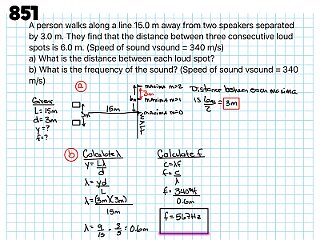 851
A person walks along a line 15.0 m away from two speakers separated
by 3.0 m. They find that the distance between three consecutive loud
spots is 6.0 m. (Speed of sound vsound = 340 m/s)
a) What is the distance between each loud spot?
b) What is the frequency of the sound? (Speed of sound vsound = 340
m/s)
a
maxima m=2
3m
maxima m=1
maxima m=0
15m
3m
Distance between each maxima
is 6m/2 = 3m
Given
L=15m
d=3m
y=?
f=?
b
Calculate λ
y=Lλ/d
λ=yd/L
λ=(3m)(3m)/15m
λ=9/15=3/5=0.6m
Calculate f
c=λf
f=c/λ
f=340m/s/0.6m
f=567Hz